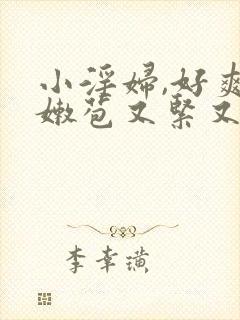 小淫婦,好爽
嫩苞又緊又
李幸璜